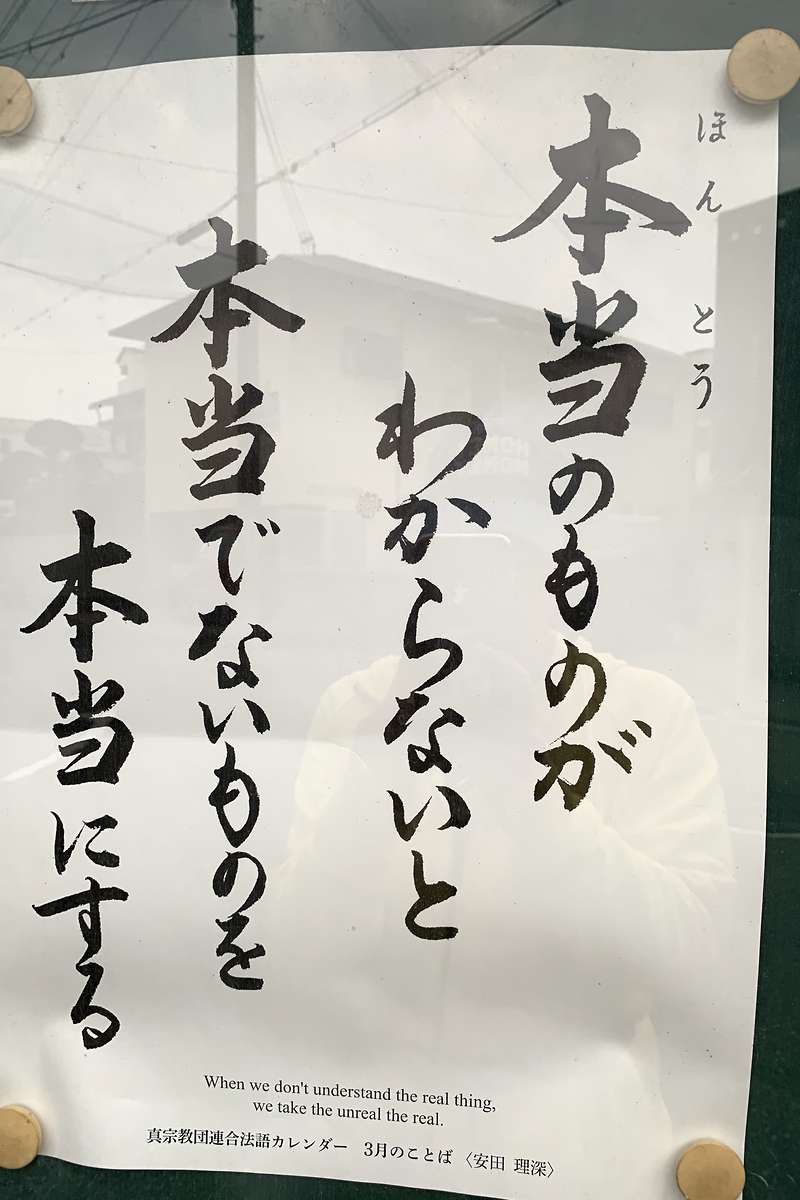 本当のものが
ほんとう
わからないと
本当でないものを
本当にする
When we don't understand the real thing,
we take the unreal the real.
真宗教団連合法語カレンダー 3月のことば〈安田 理深〉